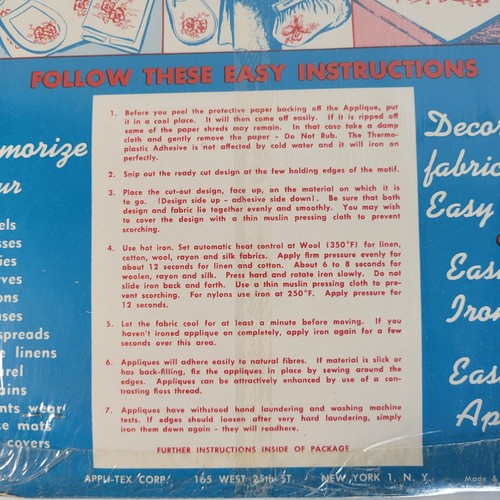 FOLLOW THESE EASY INSTRUCTIONS
1. Before you peel the protective paper backing off the Applique, put
it in a cool place. It will then come off easily. If it is ripped off
some of the paper shreds may remain. In that case take a damp
cloth and gently remove the paper - Do Not Rub. The Thermo-
plastic Adhesive is not affected by cold water and it will iron on
perfectly.
2. Snip out the ready cut design at the few holding edges of the motif.
3. Place the cut-out design, face up, on the material on which it is
to go. (Design side up - adhesive side down). Be sure that both
design and fabric lie together evenly and smoothly. You may wish
to cover the design with a thin muslin pressing cloth to prevent
scorching.
4. Use hot iron. Set automatic heat control at Wool (350°F) for linen,
cotton, wool, rayon and silk fabrics. Apply firm pressure evenly for
about 12 seconds for linen and cotton. About 6 to 8 seconds for
woolen, rayon and silk. Press hard and rotate iron slowly. Do not
slide iron back and forth. Use a thin muslin pressing cloth to pre-
vent scorching. For nylons use iron at 250°F. Apply pressure for
12 seconds.
5. Let the fabric cool for at least a minute before moving. If you
haven't ironed applique on completely, apply iron again for a few
seconds over this area.
6. Appliques will adhere easily to natural fibres. If material is slick or
has back-filling, fix the appliques in place by sewing around the
edges. Appliques can be attractively enhanced by use of a con-
trasting floss thread.
7. Appliques have withstood hand laundering and washing machine
tests. If edges should loosen after very hard laundering, simply
iron them down again - they will readhere.
FURTHER INSTRUCTIONS INSIDE OF PACKAGE
morize
ur
els
sses
ies
rves
ons
ses
spreads
e linens
arel
ains
nts wear
e mats
covers
Decor
fabric
Easy
Eas
Iron
Eas
Ap
APPLI-TEX CORP. 165 WEST 25th ST. NEW YORK 1, N. Y.
Made